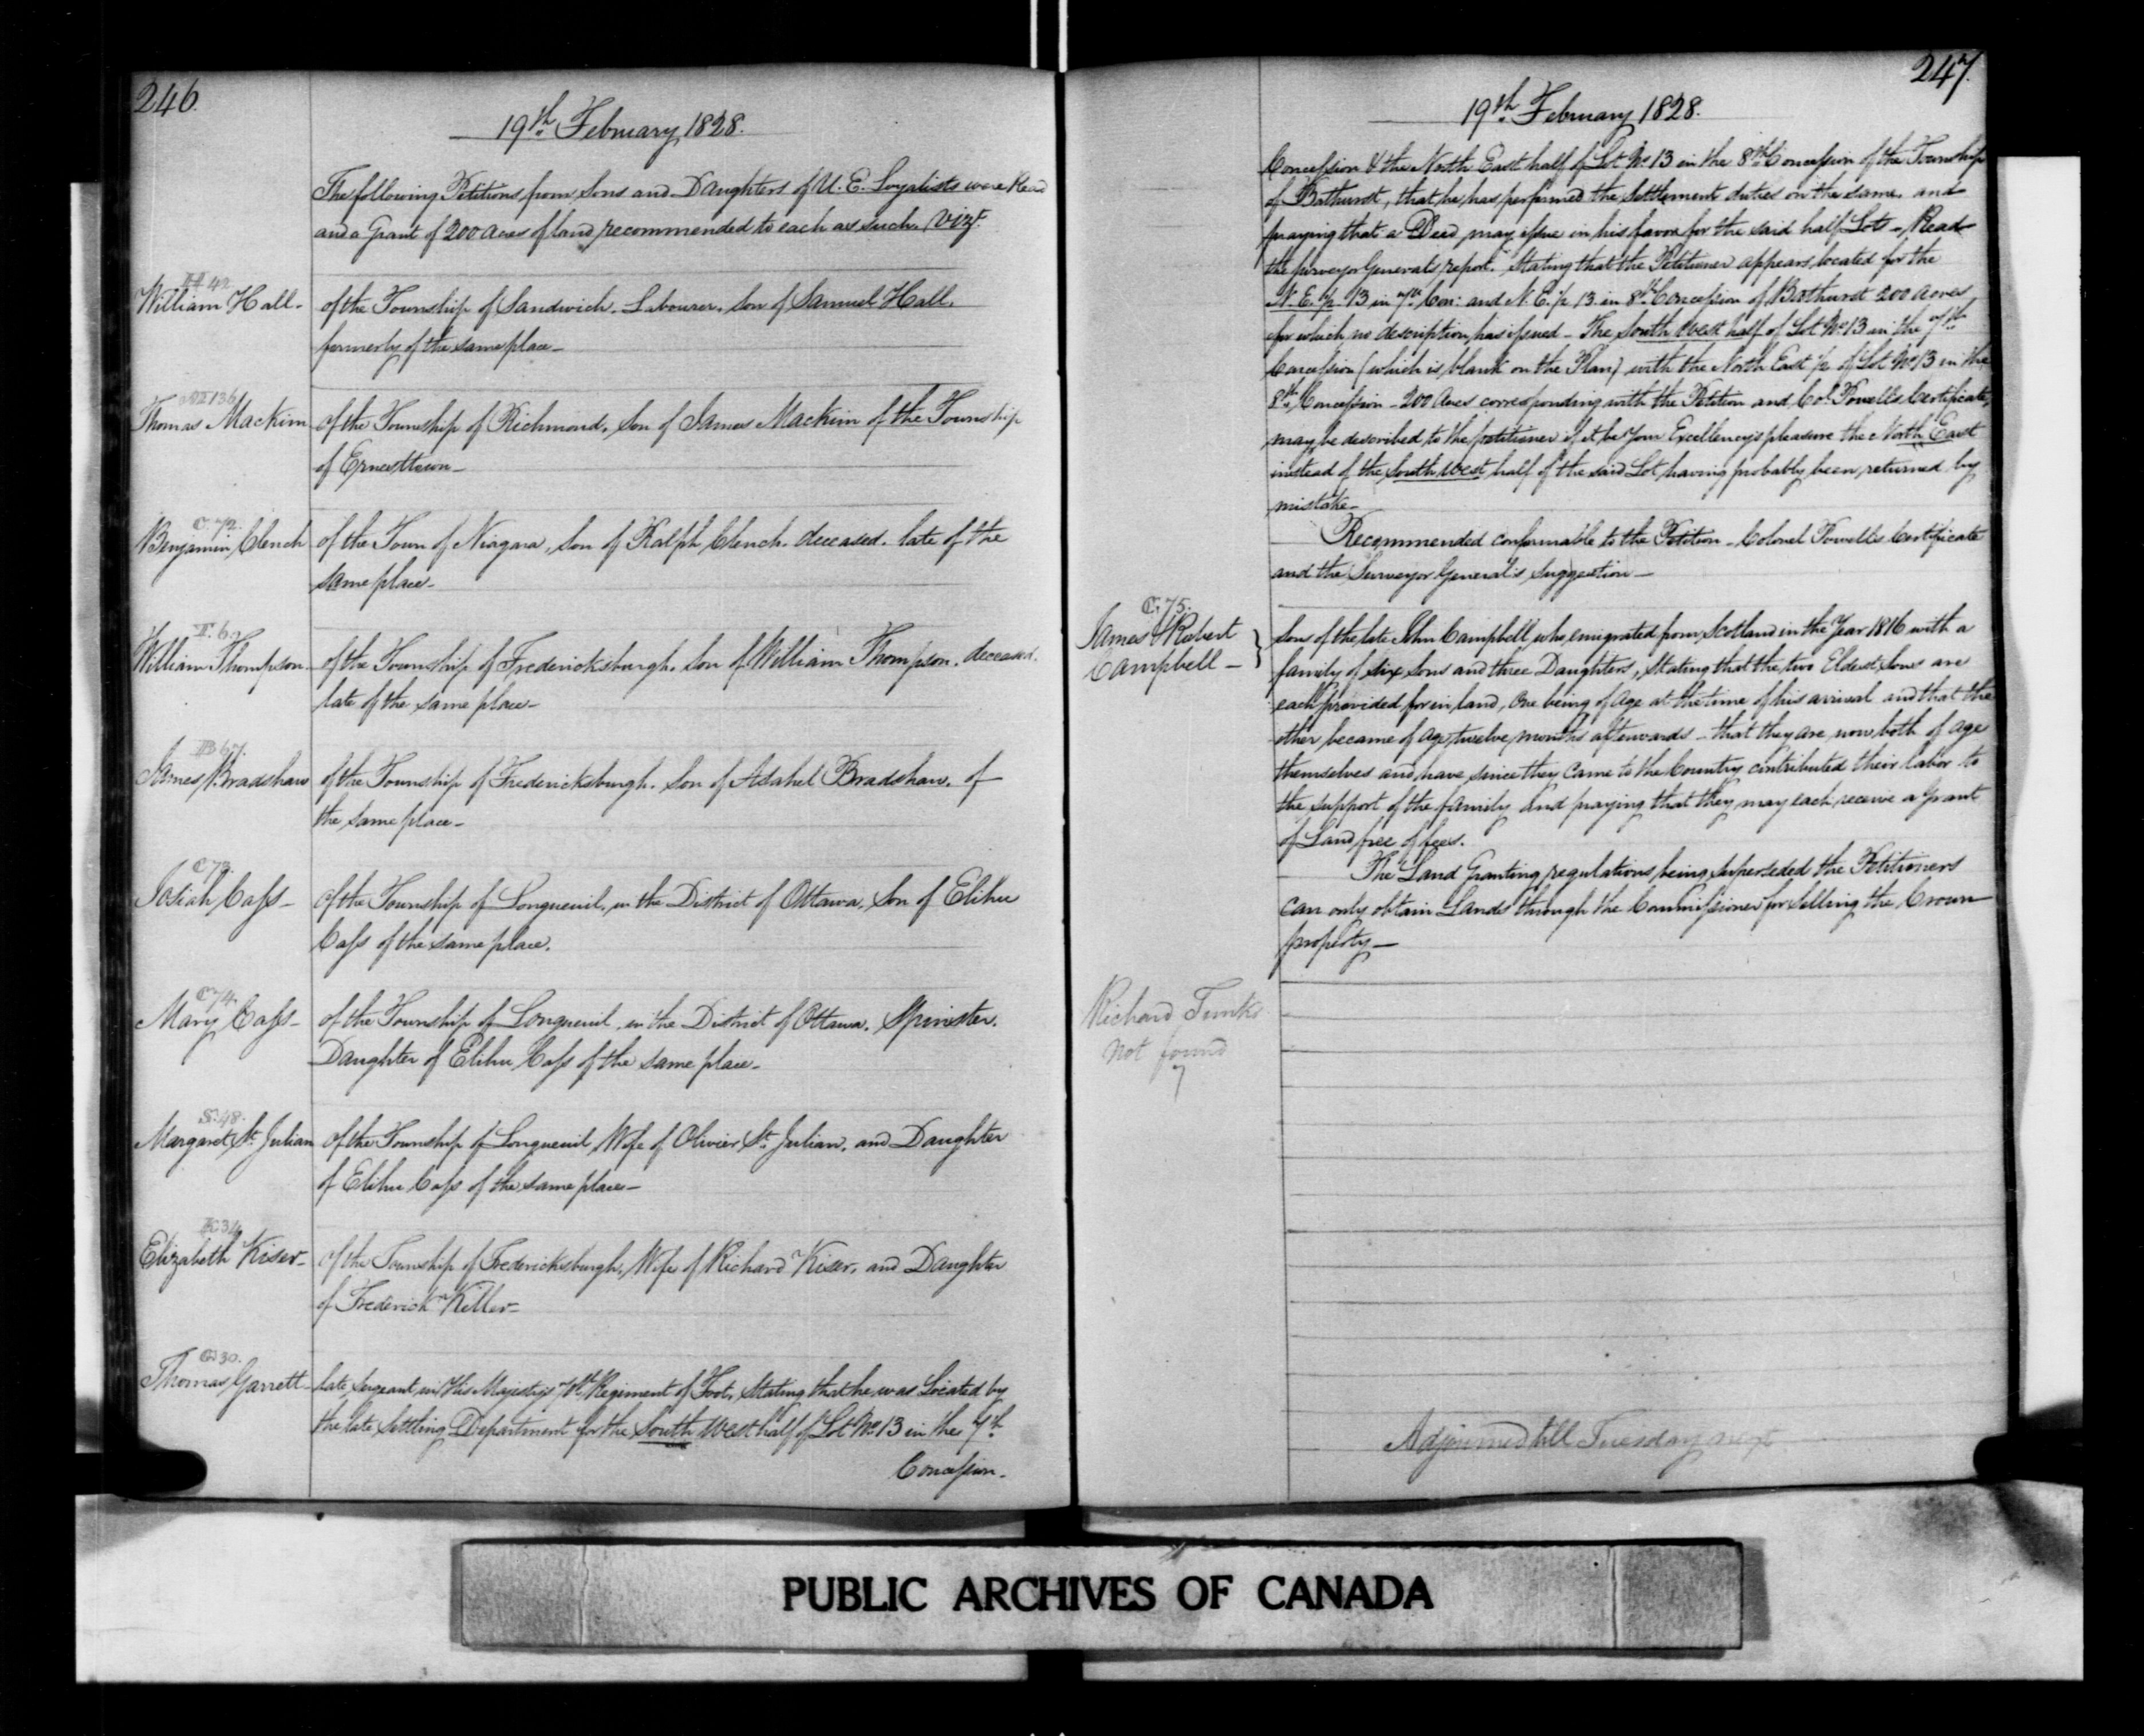 246.
19th February, 1828.
The following Petitions from Sons and Daughters of U. E. Loyalists were Read
and a Grant of 200 Acres of land recommended to each as such. Vizt
H 42
William Hall - of the Township of Sandwich. Labourer, Son of Samuel Hall.
formerly of the same place -
M 136
Thomas Mackim of the Township of Richmond, Son of James Mackim of the Township
of Ernesttown -
C. 72.
Benjamin Clench of the Town of Niagara, Son of Ralph Clench. deceased. late of the
same place -
T. 6
William Thompson of the Township of Fredericksburgh. Son of William Thompson. deceased.
late of the same place -
B 67.
James Bradshaw of the Township of Fredericksburgh. Son of Asahel Bradshaw. of
the same place -
C 73.
Josiah Cass - of the Township of Longueuil, in the District of Ottawa, Son of Elihu
Cass of the same place.
C 74.
Mary Cass - of the Township of Longueuil, in the District of Ottawa. Spinster.
Daughter of Elihu Cass of the same place -
S. 48.
Margaret St. Julian of the Township of Longueuil Wife of Olivier St. Julian, and Daughter
of Elihu Cass of the same place -
K 34
Elizabeth Kiser - of the Township of Fredericksburgh, Wife of Richard Kiser, and Daughter
of Frederick Keller -
G 30.
Thomas Garrett late Sergeant in His Majesty's Regiment of Foot, Stating that he was Located by
the late Settling Department for the South West half of Lot No 13 in the 7th
Concession.
247.
19th February 1828.
Concession & the North East half of Lot No 13 in the 8th Concession of the Township
of Bathurst, that he has performed the Settlement duties on the same, and
praying that a Deed may issue in his favor for the said half Lots - Read
the Surveyor General's report. Stating that the Petitioner appears located for the
N. E. 1/2 13 in 7th Con: and N. E. 1/2 13 in 8th Concession of Bathurst 200 Acres
for which no description has issued - The South West half of Lot No 13 in the 7th
Concession (which is blank on the Plan) with the North East 1/2 of Lot No 13 in the
8th Concession - 200 Acres corresponding with the Petition and Col. Powell's Certificate,
may be described to the petitioner if it be Your Excellency's pleasure the North East
instead of the South West half of the said Lot having probably been returned by
mistake -
Recommended conformable to the Petition - Colonel Powell's Certificate
and the Surveyor General's Suggestion -
C. 75.
James & Robert
Campbell -
Sons of the late John Campbell who emigrated from Scotland in the Year 1816 with a
family of six Sons and three Daughters, Stating that the two Eldest Sons are
each provided for in land, One being of Age at the time of his arrival and that the
other became of Age twelve months afterwards - that they are now both of age
themselves and have since they came to the Country contributed their labor to
the support of the family and praying that they may each receive a Grant
of Land free of fees.
The Land Granting regulations being superseded the Petitioners
can only obtain Lands through the Commissioner for Selling the Crown
property -
Richard
not found
7
Adjourned till Tuesday next
PUBLIC ARCHIVES OF CANADA